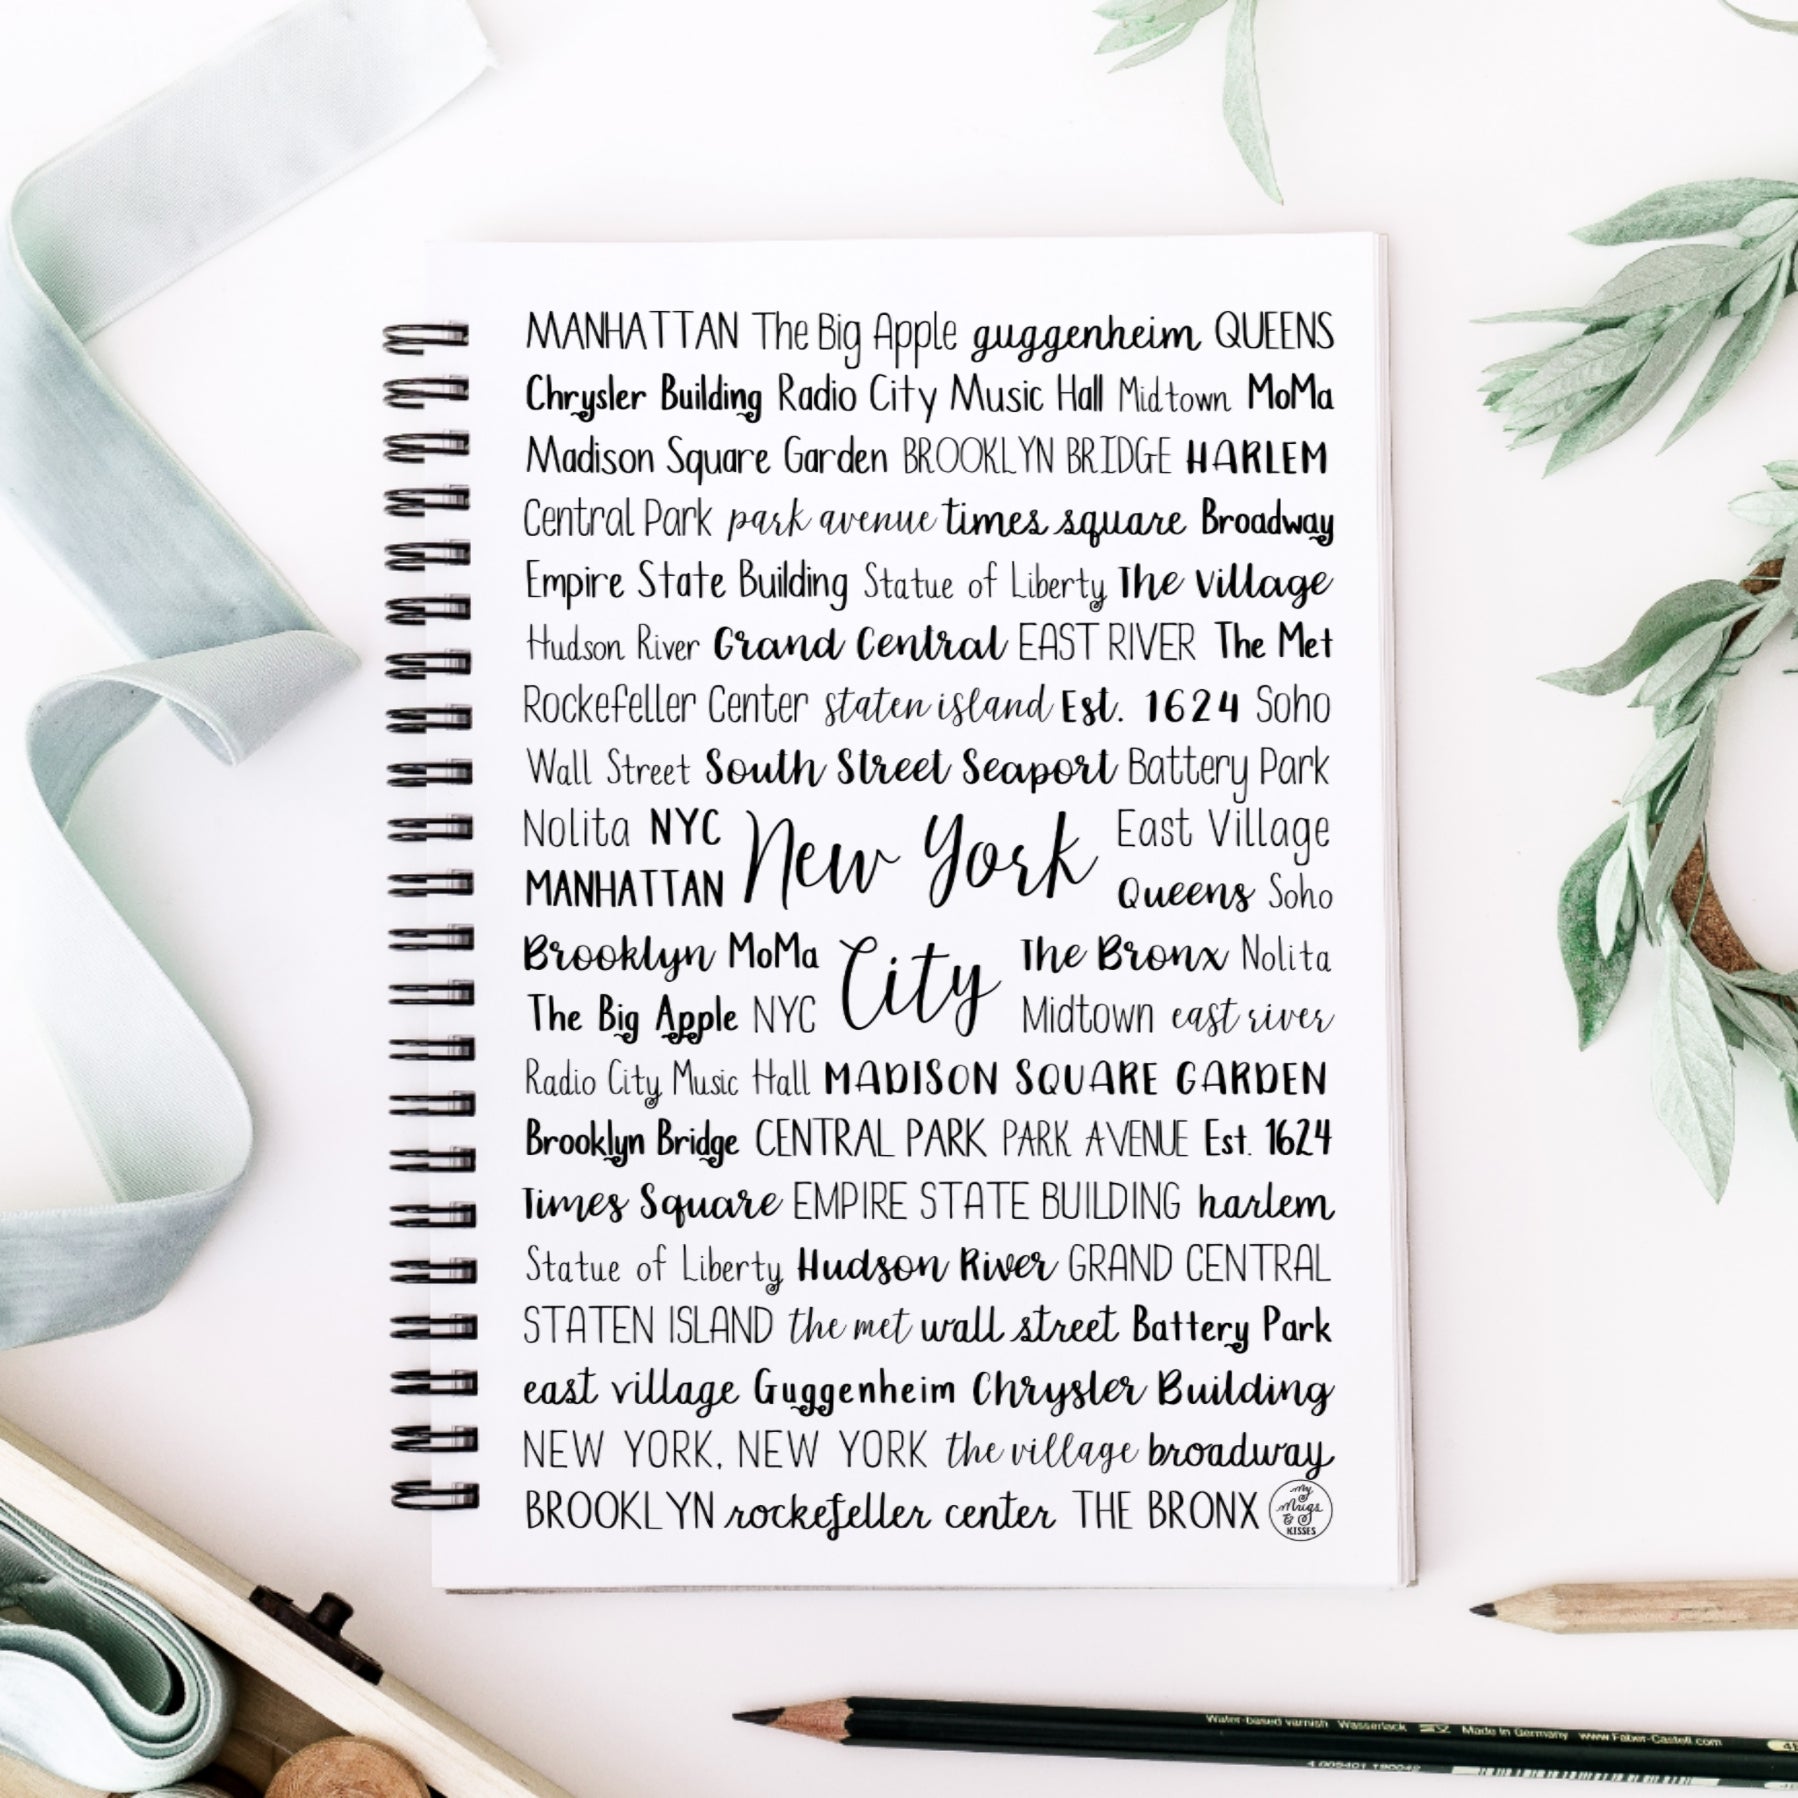 MANHATTAN The Big Apple guggenheim QUEENS
Chrysler Building Radio City Music Hall Midtown MoMa
Madison Square Garden BROOKLYN BRIDGE HARLEM
Central Park park avenue times square Broadway
Empire State Building Statue of Liberty The Village
Hudson River Grand Central EAST RIVER The Met
Rockefeller Center staten island Est. 1624 Soho
Wall Street South Street Seaport Battery Park
Nolita NYC
MANHATTAN
New York
East Village
Queens Soho
Brooklyn MoMa
The Big Apple NYC
City
The Bronx Nolita
Midtown east river
Radio City Music Hall MADISON SQUARE GARDEN
Brooklyn Bridge CENTRAL PARK PARK AVENUE Est. 1624
Times Square EMPIRE STATE BUILDING harlem
Statue of Liberty Hudson River GRAND CENTRAL
STATEN ISLAND the met wall street Battery Park
east village Guggenheim Chrysler Building
NEW YORK, NEW YORK the village broadway
BROOKLYN rockefeller center THE BRONX
My
Mugs
&
KISSES
Water-based varnish Wasserlack Made in Germany www.Faber-Castell.com